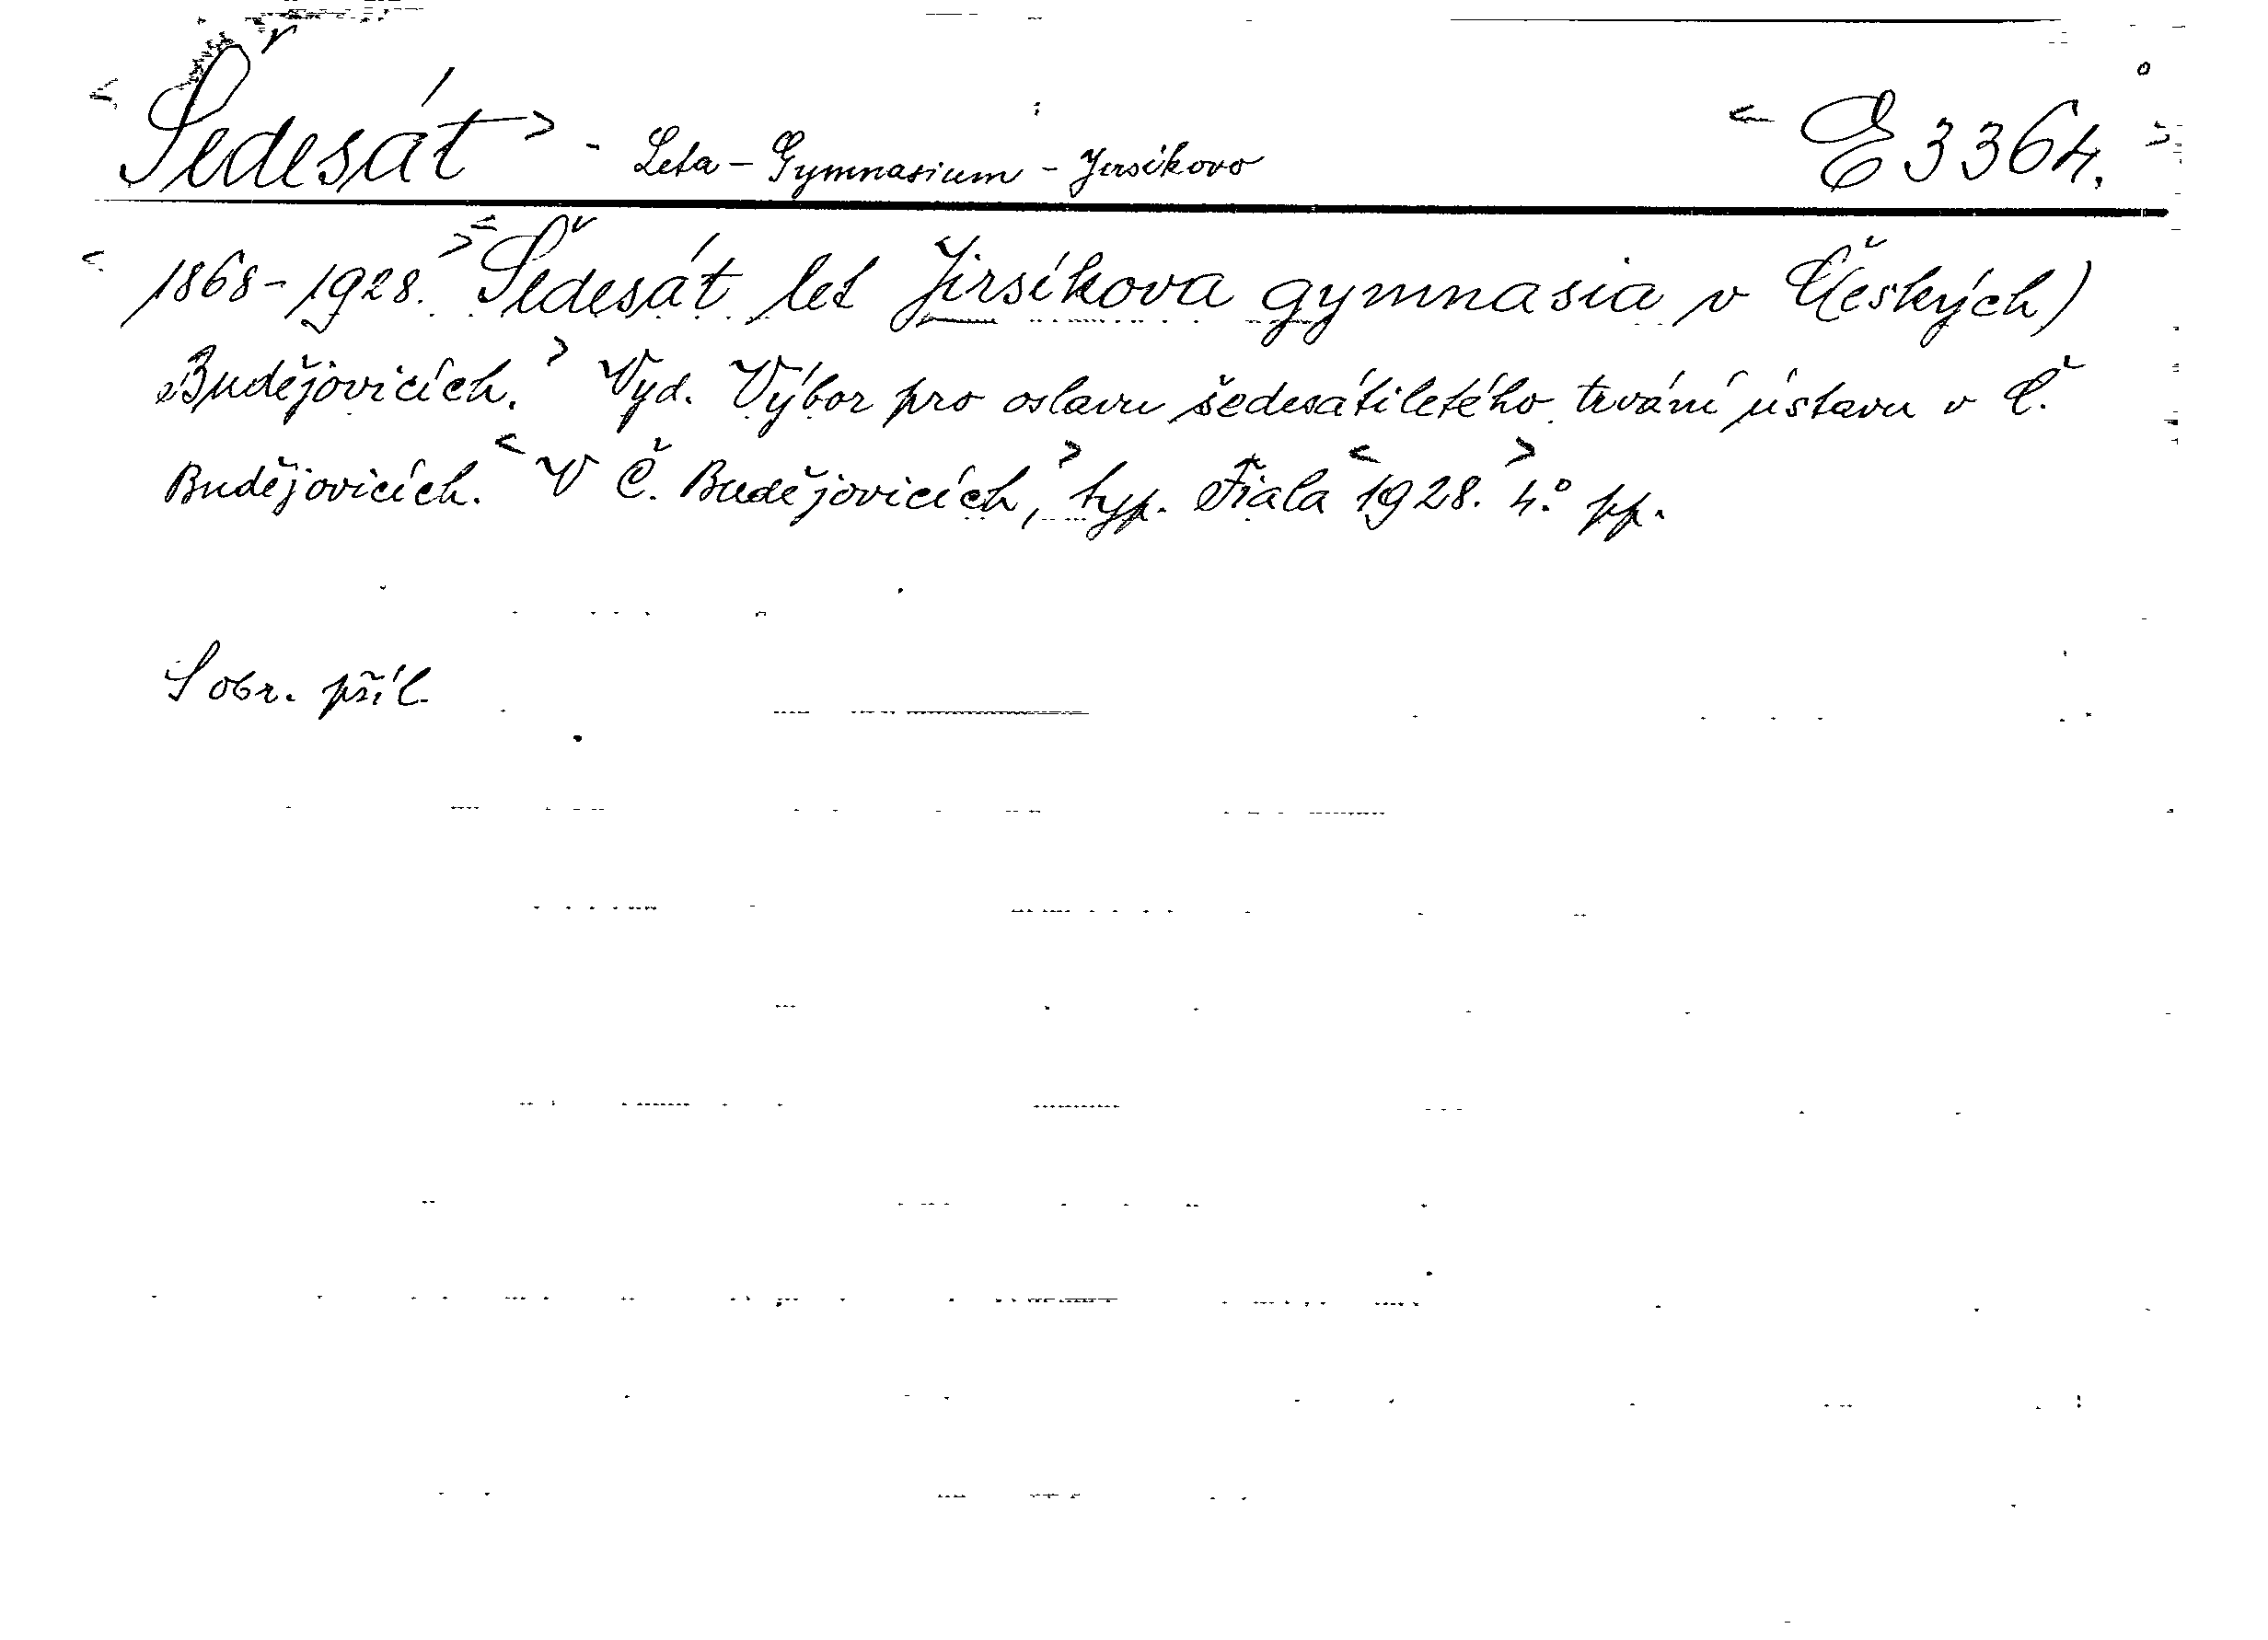 <Šedesát> - Leta - Gymnasium - Jirsíkovo <E 3364.>
<1868-1928.> <Šedesát let Jirsíkova gymnasia v Č(eských)
Budějovicích.> Vyd. Výbor pro oslavu šedesátiletého trvání ústavu v Č.
Budějovicích. <V Č. Budějovicích,> typ. Fiala <1928.> 4.° pp.
S obr. příl.